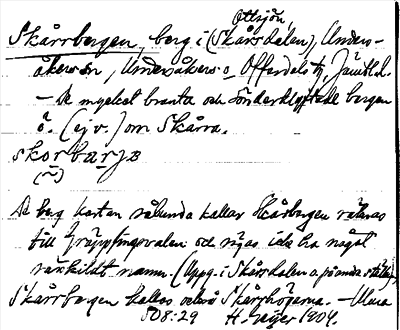 Ottsjön,
Skårrbergen, berg i (Skårsdalen), Unders-
åkers sn, Undersåkers o. Offerdals tg, Jämtl.
— De mycket branta och sönderklyftade bergen
ö. (ej v.) om Skårra.
skorbarjʙ
De berg kartan sålunda kallar Skårbergen räknas
till Gräppfingsvalen och sägas icke ha något
särskildt namn. (Uppg. i Skårsdalen o på andra ställen),
Skårrbergen kallas också Skårshögarna. — Ulma
508:29 H. Geijer 1904.